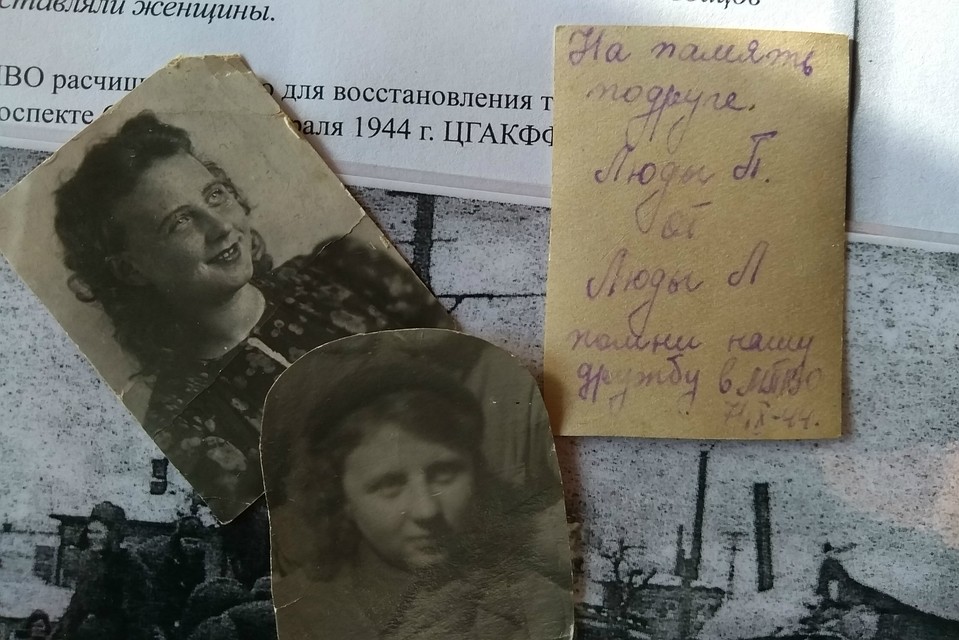 ставляли женщины.
ВО расчищ о для восстановления т
оспекте раля 1944 г. ЦГАКФФ
На память
подруге.
Люды П.
от
Люды Л
помни нашу
дружбу в МПВО
IX-44.